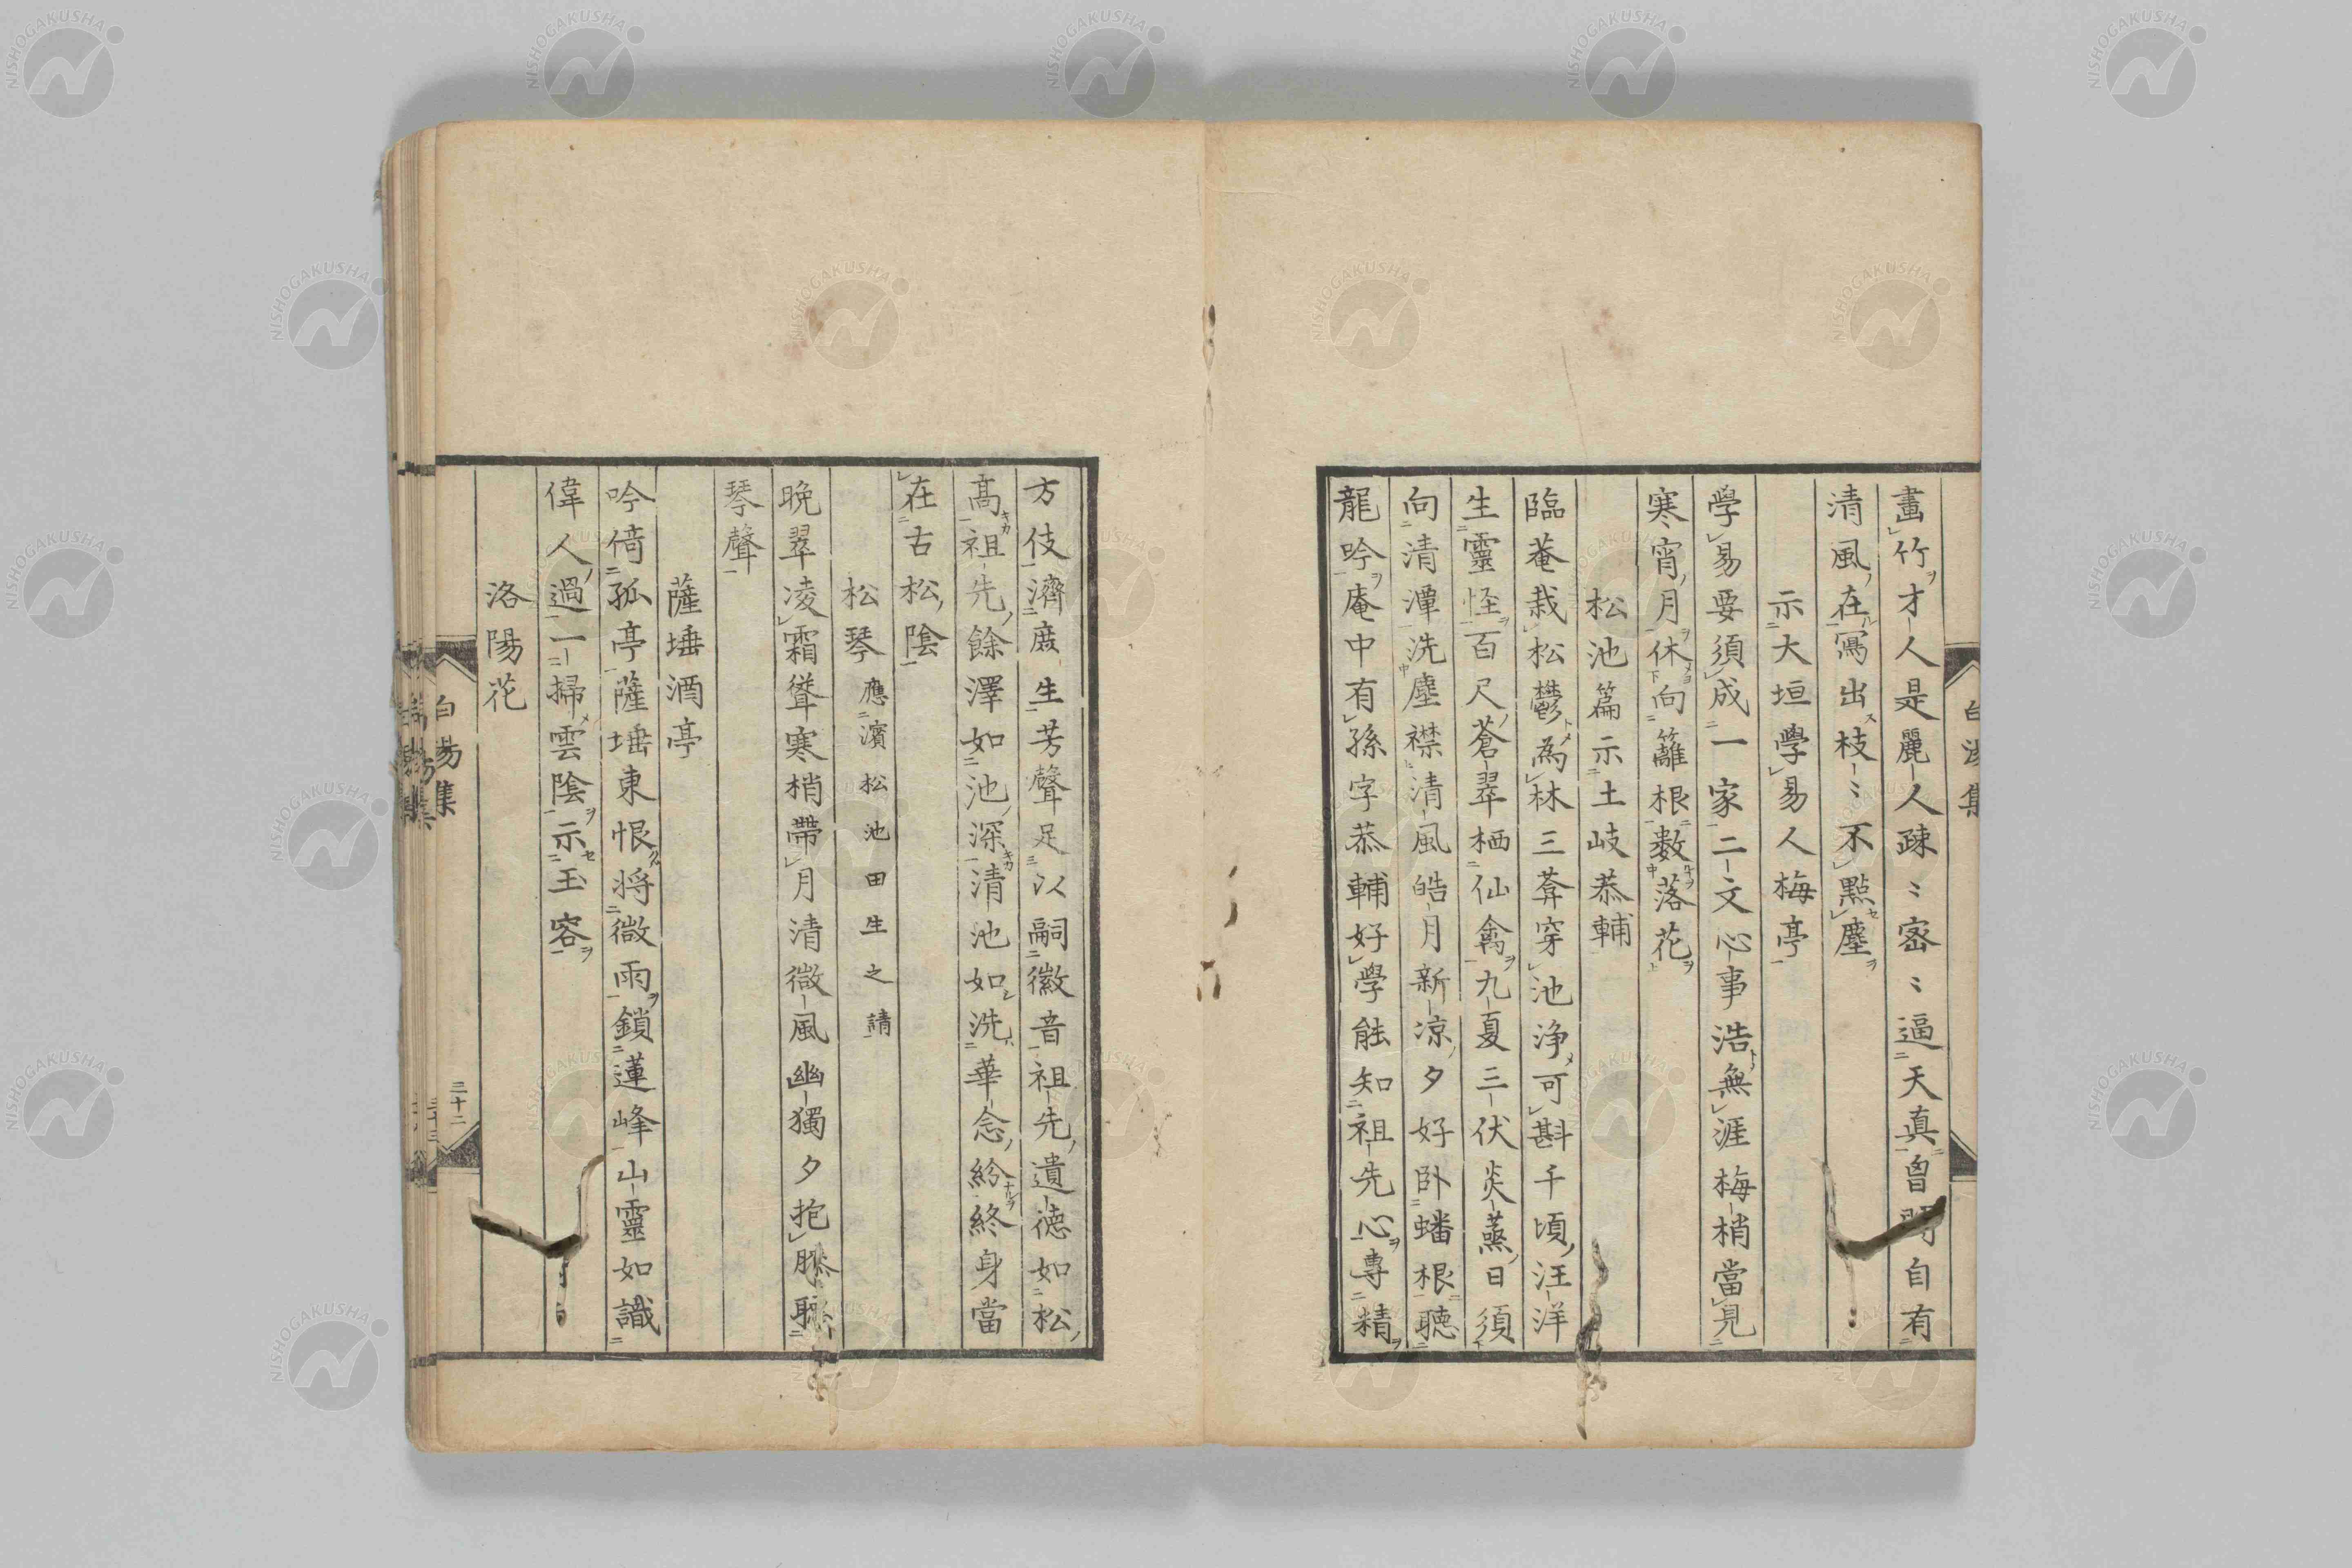 畫竹才人是麗人疎〻密〻逼天真曾聞自有
清風在寫出枝〻不點塵
示大垣學易人梅亭
學易要須成一家二文心事浩無涯梅梢當見
寒宵月休向籬根數落花
松池篇示土岐恭輔
臨菴栽松鬱為林三葊穿池浄可斟千頃汪洋
生靈怪百尺蒼翠栖仙禽九夏三伏炎蒸日須
向清潭洗塵襟清風皓月新凉夕好卧蟠根聽
龍吟庵中有孫字恭輔好學能知祖先心專精
方伎濟庻生芳聲足以嗣徽音祖先遺德如松
高祖先餘澤如池深清池如洗華念紛終身當
在古松陰
松琴應濱松池田生之請
晚翠凌霜聳寒梢帶月清微風幽獨夕抱膝聽
琴聲
薩埵酒亭
吟倚孤亭薩埵東恨将微雨鎖蓮峰山靈如識
偉人過一掃雲陰示玉容
洛陽花
白湯集
三十二
NISHOGAKUSHA